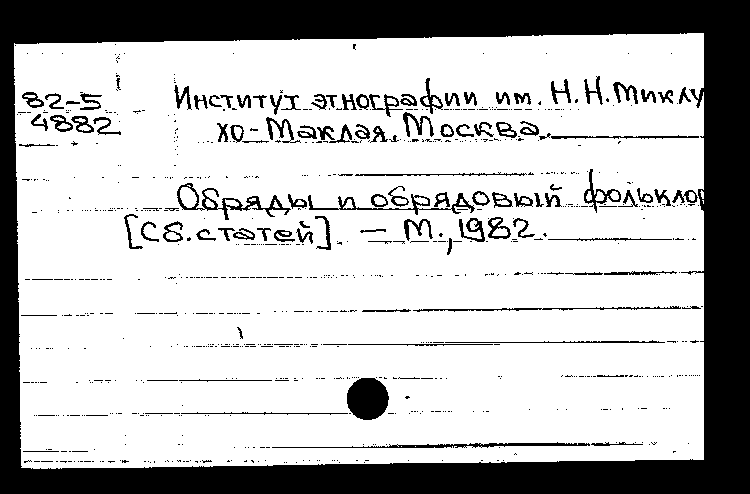 82-5
4882
Институт этнографии им. Н.Н.Миклу
хо-Маклая, Москва.
Обряды и обрядовый фольклор
[Сб.статей]. — М., 1982.